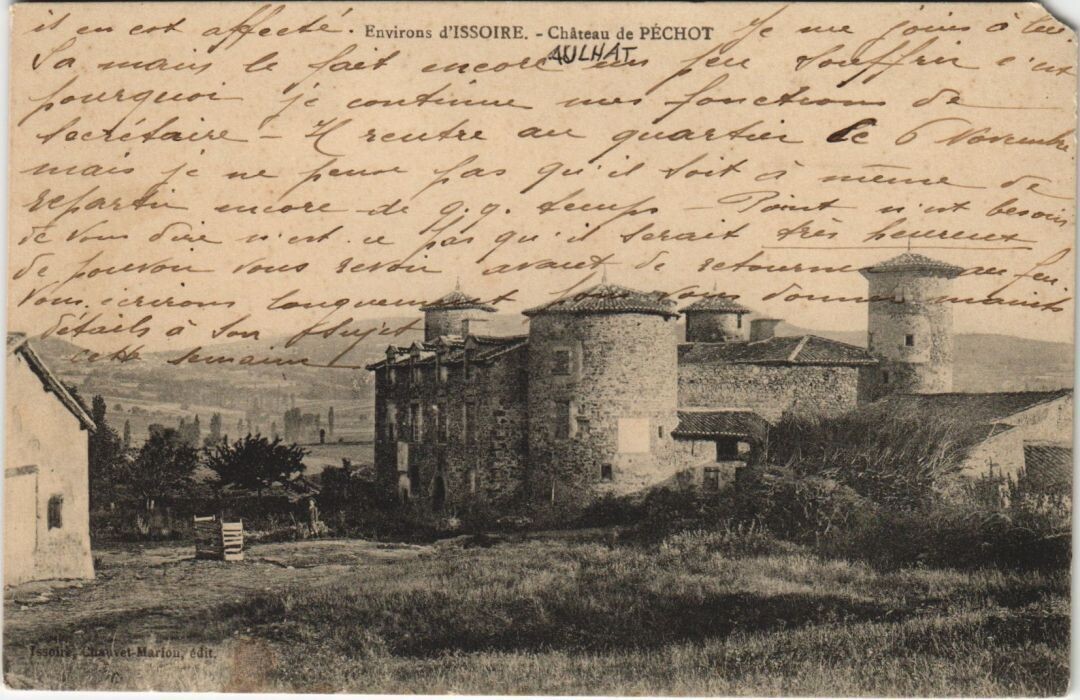 Environs d'ISSOIRE. - Château de PÉCHOT
AULHAT
il en est affecté. Je me joins à lui
Sa main le fait encore un peu souffrir c'est
pourquoi je continue mes fonctions de
secrétaire - Il rentre au quartier le 6 Novembre
mais je ne pense pas qu'il soit à même de
repartir encore de q.q. temps - Point n'est besoin
de vous dire n'est ce pas qu'il serait très heureux
de pouvoir vous revoir avant de retourner au feu.
Vous écrirons longuement pour vous donner maints
détails à son sujet
cette semaine
Issoire, Chauvet-Marfou, édit.